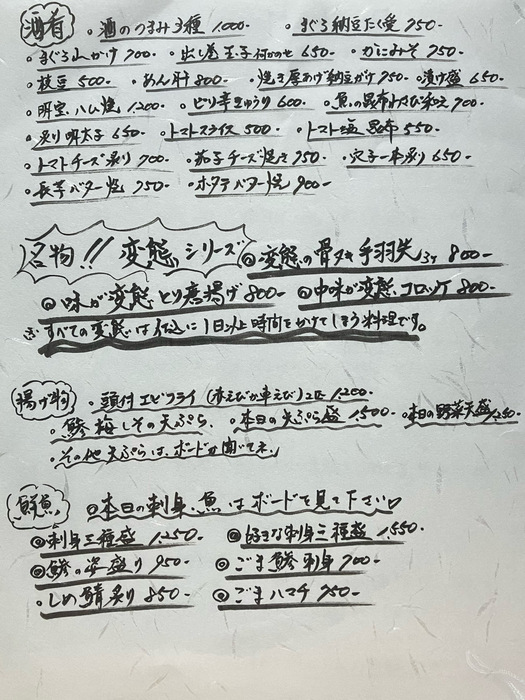 酒肴 ・酒のつまみ3種 1,000- ・まぐろ納豆たく受 750-
・まぐろ山かけ 700- ・出し巻玉子何かのせ 650- ・かにみそ 750-
・枝豆 500- ・あん肝 800- ・焼き厚あげ納豆かけ 750- ・漬け盛 650-
ハム焼 1,200- ・ピリ辛きゅうり 600- ・魚の昆布わさび和え 700-
・炙り明太子 650- ・トマトスライス 500- ・トマト塩昆布 550-
・トマトチーズ炙り 700- ・茄子チーズ焼き 750- ・穴子一本炙り 650-
・長芋バター焼 750- ・ホタテバター焼 900-
名物!! 変態シリーズ ◎変態の骨ヌキ手羽先 3ヶ 800-
◎味が変態とり唐揚げ 800- ◎中味が変態コロッケ 800-
※すべての変態は仕込に1日以上時間をかけてしまう料理です。
揚げ物 ・頭付エビフライ(赤えびか車えび)2匹 1,200-
・鯵梅しその天ぷら、 ・本日の天ぷら盛 1,500- ・本日の野菜天盛 1,250-
・その他天ぷらは、ボードか聞いてネ
鮮魚 ◎本日の刺身、魚はボードを見て下さい♡
◎刺身三種盛 1,250- ◎好きな刺身三種盛 1,550-
◎鯵の姿盛り 950- ◎ごま鯵刺身 700-
・しめ鯖炙り 850- ◎ごまハマチ 750-